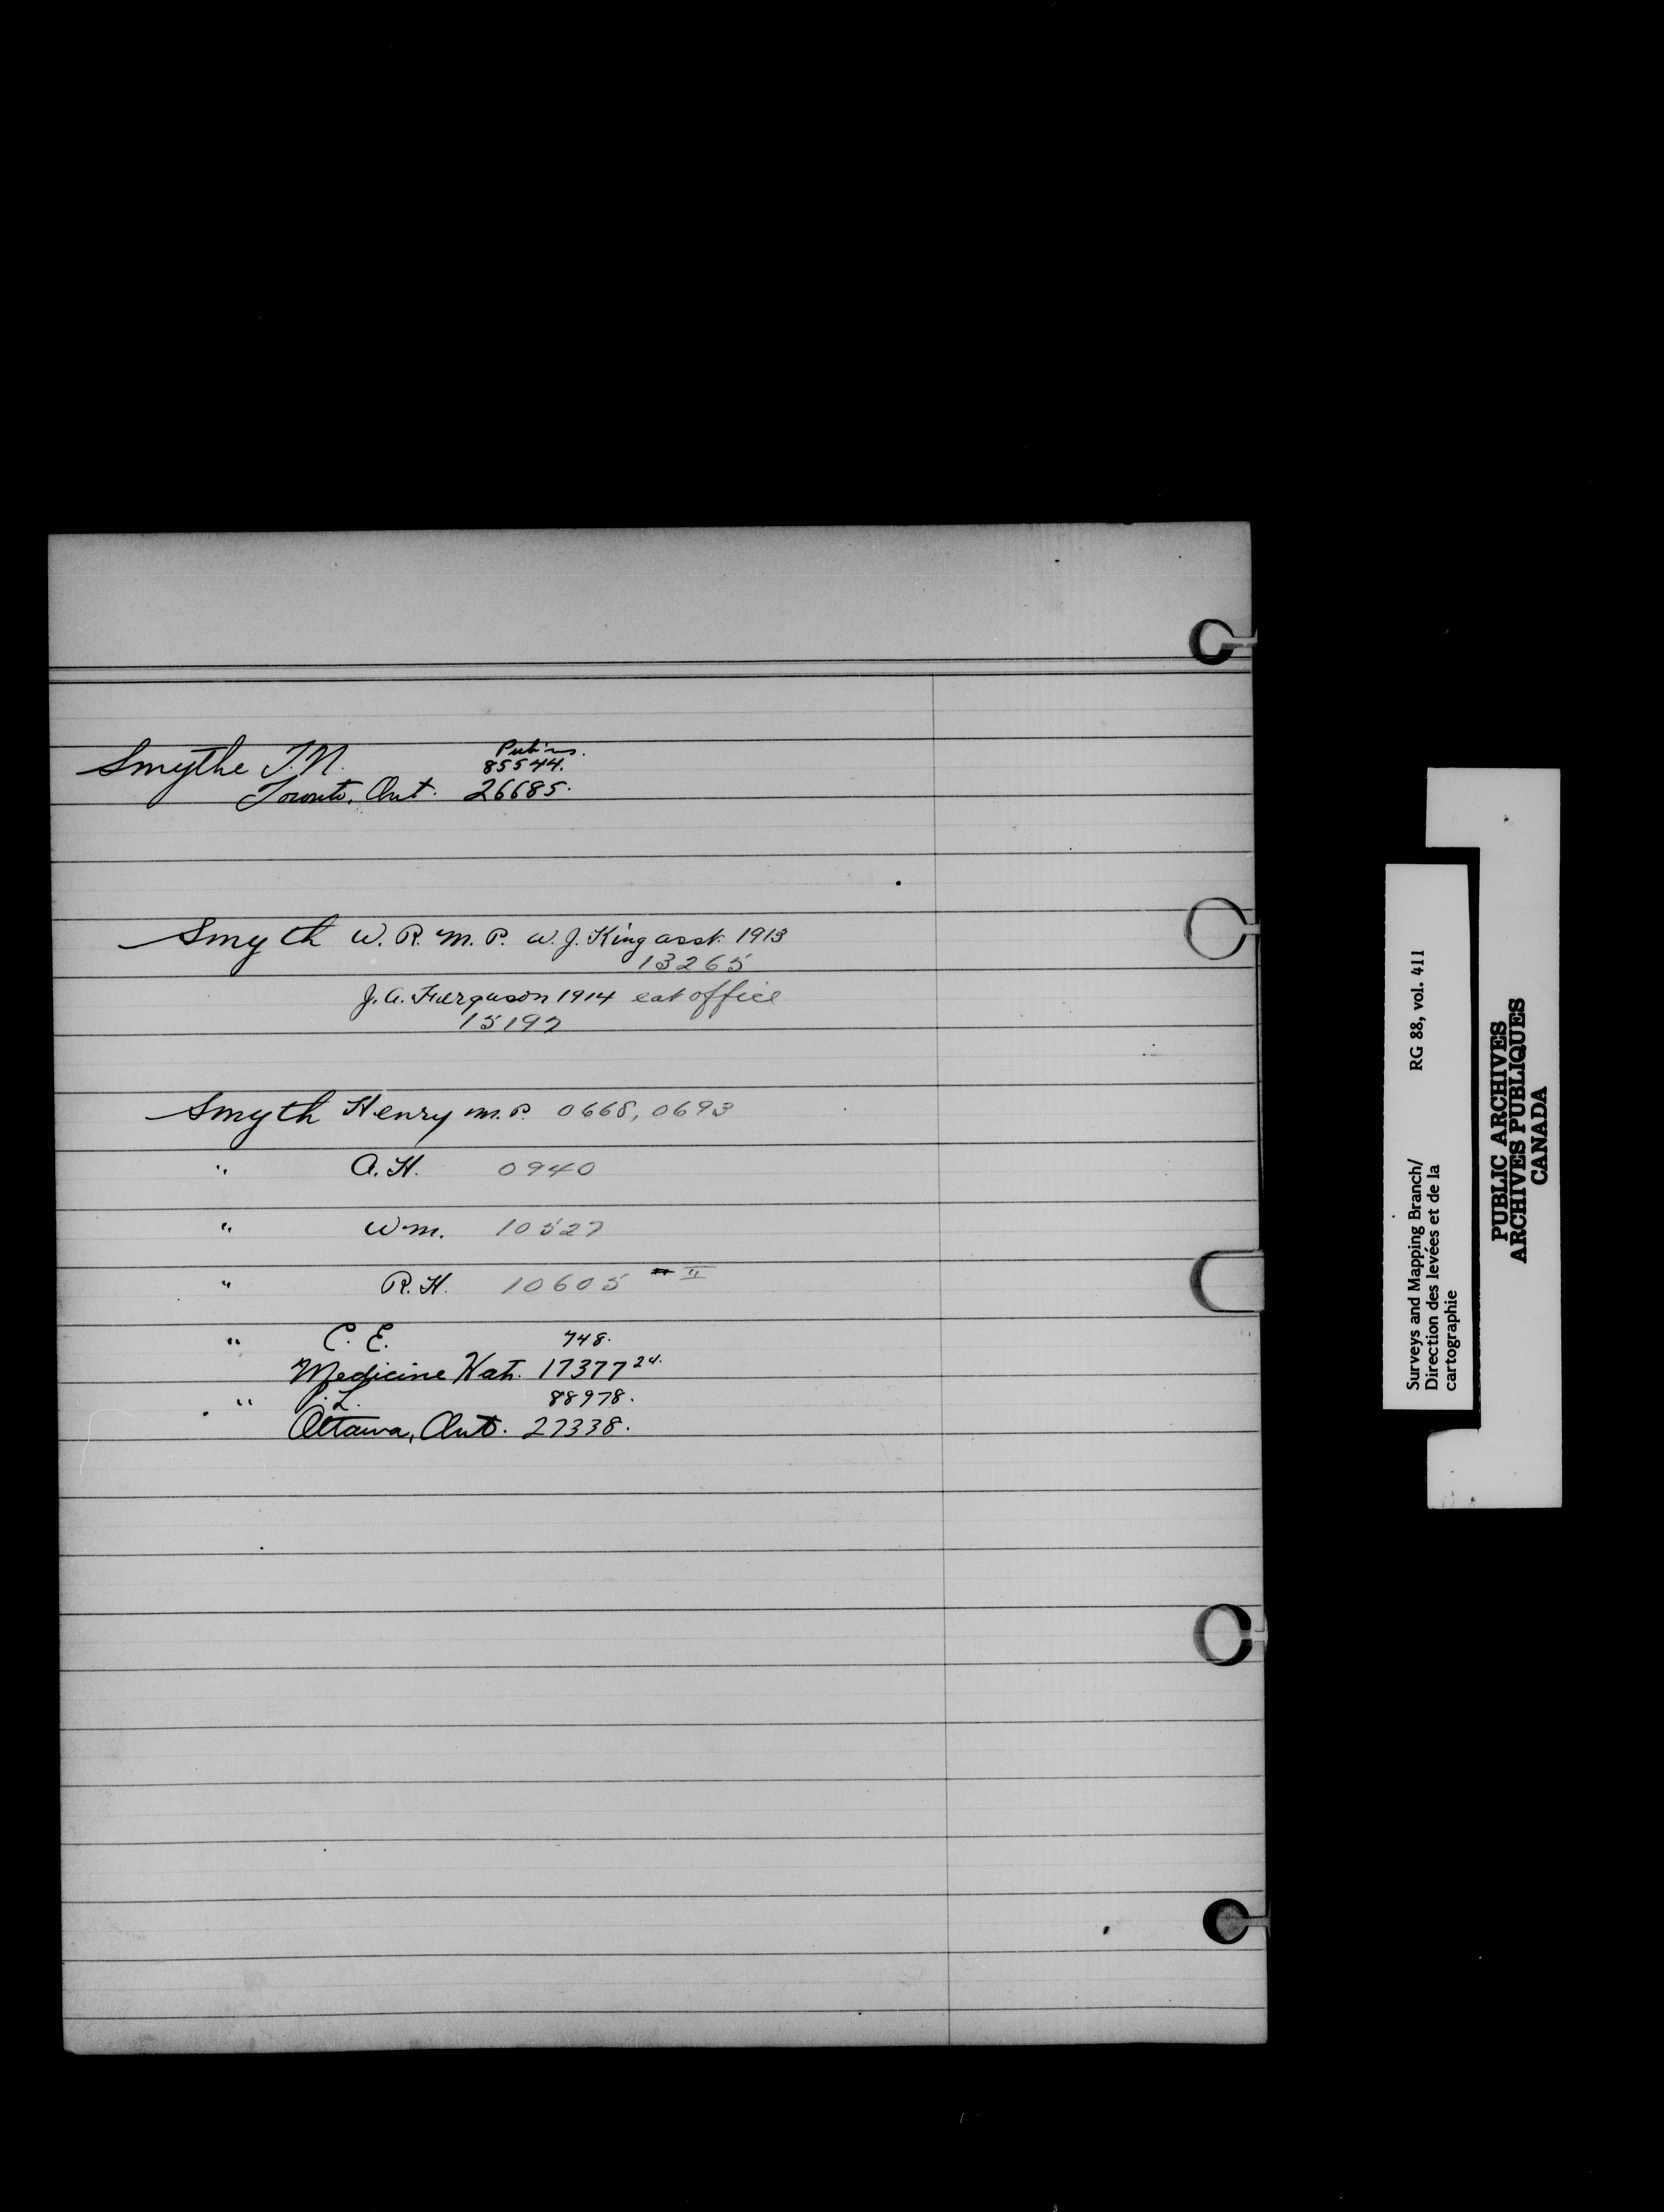 Smythe T.N. Pub'ns.
85544.
Toronto, Ont. 26685.
Smyth W. R. M. P. W. J. King asst. 1913
13265
J. A. Furguson 1914 eat office
15197
Smyth Henry M. P. 0668, 0693
" A. H. 0940
" Wm. 10527
" R. H. 10605 II
" C. E. 748.
Medicine Hat. 17377 24.
" L. 88978.
Ottawa, Ont. 27338.
Surveys and Mapping Branch/ RG 88, vol. 411
Direction des levées et de la
cartographie
PUBLIC ARCHIVES
ARCHIVES PUBLIQUES
CANADA